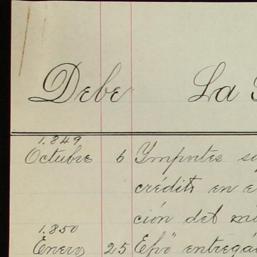 Debe La
1.849
Octubre 6 Ymportes
crédito en
ción del
1.850
Enero 25 Efvo entrega